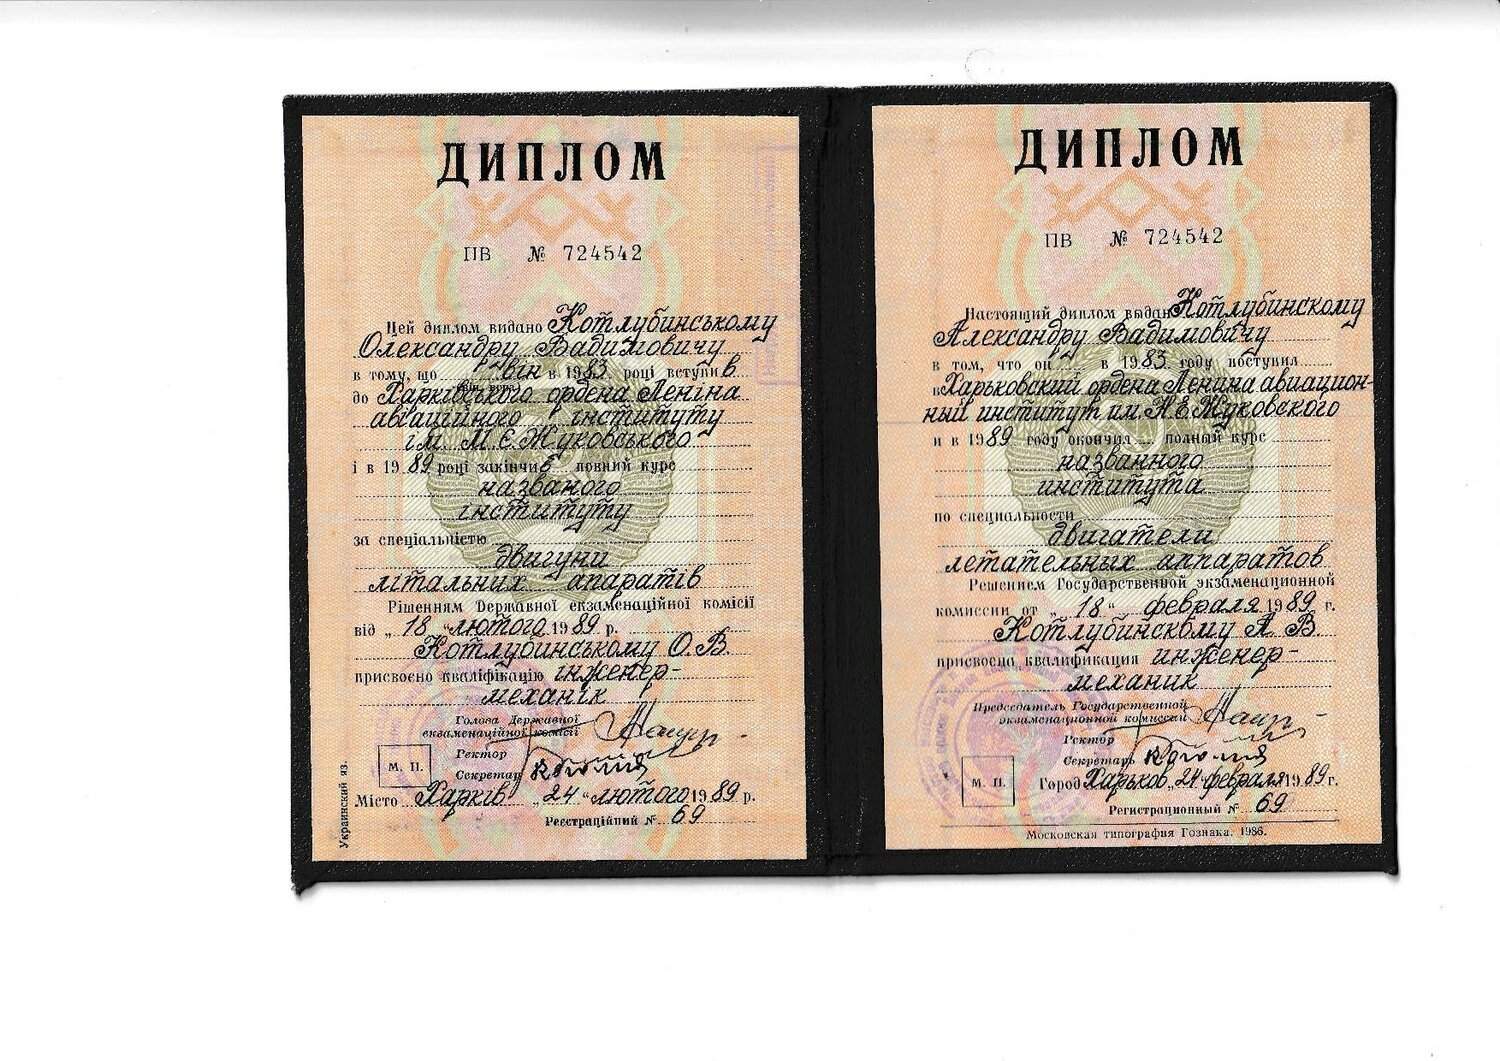 ДИПЛОМ
ПВ № 724542
Цей диплом видано Котлубинському
Олександру Вадимовичу
в тому, що він в 1983 році вступив
до Харківського ордена Леніна
авіаційного інституту
ім. М.Є.Жуковського
і в 1989 році закінчив повний курс
названого
інституту
за спеціальністю
двигуни
літальних апаратів
Рішенням Державної екзаменаційної комісії
від „18“ лютого 1989 р.
Котлубинському О.В.
присвоєно кваліфікацію інженер-
механік
Голова Державної
екзаменаційної комісії
Ректор
Секретар
М. П.
Місто Харків „24“ лютого 1989 р.
Реєстраційний № 69
Украинский яз.
ДИПЛОМ
ПВ № 724542
Настоящий диплом выдан Котлубинскому
Александру Вадимовичу
в том, что он в 1983 году поступил
в Харьковский ордена Ленина авиацион-
ный институт им. Н.Е.Жуковского
и в 1989 году окончил полный курс
названного
института
по специальности
двигатели
летательных аппаратов
Решением Государственной экзаменационной
комиссии от „18“ февраля 1989 г.
Котлубинскому А.В.
присвоена квалификация инженер-
механик
Председатель Государственной
экзаменационной комиссии
Ректор
Секретарь
М. П.
Город Харьков „24“ февраля 1989 г.
Регистрационный № 69
Московская типография Гознака. 1986.